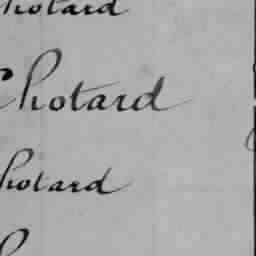 Chotard
Chotard
Chotard